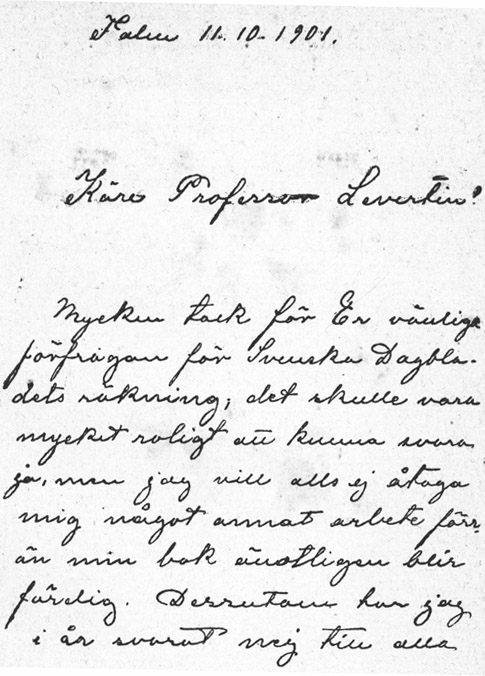 Falun 11.10.1901.
Käre Professor Levertin!
Mycken tack för Er vänliga
förfrågan för Svenska Dagbla-
dets räkning; det skulle vara
mycket roligt att kunna svara
ja, men jag vill alls ej åtaga
mig något annat arbete förr
än min bok ändtligen blir
färdig. Dessutom har jag
i år svarat nej till alla